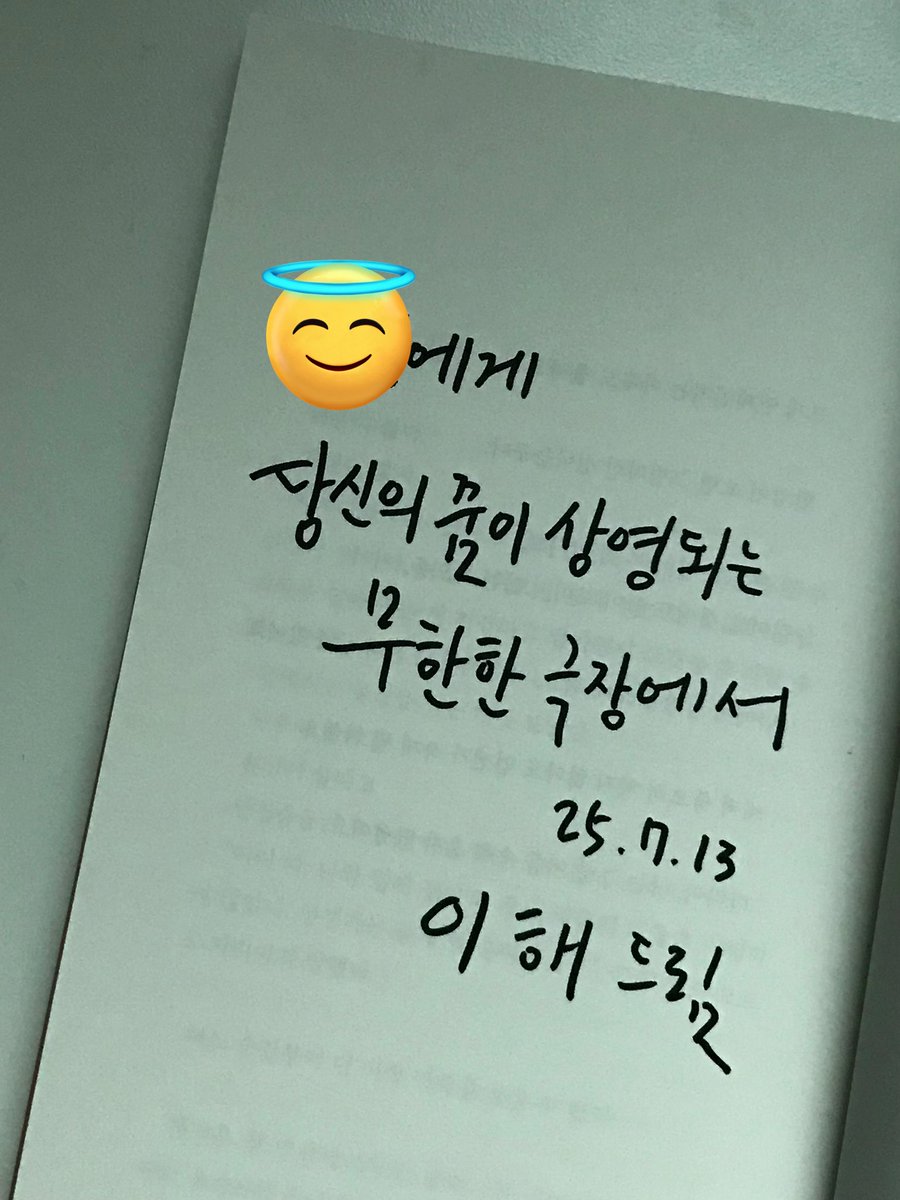 에게
당신의 꿈이 상영되는
무한한 극장에서
25.7.13
이해 드림